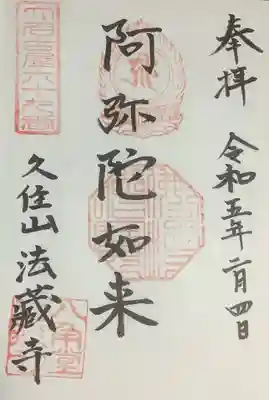 奉拝
令和五年二月四日
阿弥陀如来
久住山法蔵寺
八角堂